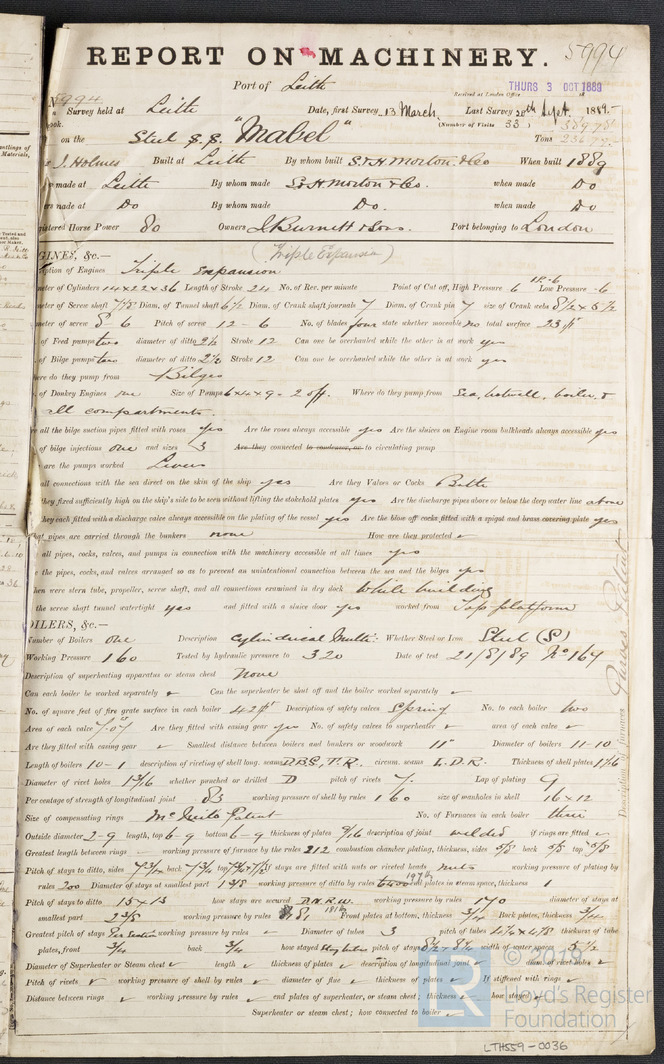 REPORT ON MACHINERY. 5994
Port of Leith
Received at London Office THURS 3 OCT 1889
5994
Survey held at Leith Date, first Survey 13 March, Last Survey 20th Sept. 1889.
(Number of Visits 33)
on the Steel S.S. "Mabel" Tons
J. Holmes Built at Leith By whom built S. & H. Morton & Co When built 1889
made at Leith By whom made S. & H. Morton & Co. when made Do
made at Do By whom made Do. when made Do
istered Horse Power 80 Owners J. Burnett & Sons. Port belonging to London
GINES, &c.— (Triple Expansion)
ription of Engines Triple Expansion
meter of Cylinders 14 x 22 x 36 Length of Stroke 24 No. of Rev. per minute Point of Cut off, High Pressure 6 I.P.-6 Low Pressure -6
meter of Screw shaft 7⅛ Diam. of Tunnel shaft 6½ Diam. of Crank shaft journals 7 Diam. of Crank pin 7 size of Crank webs 8½ x 5½
meter of screw 8-6 Pitch of screw 12-6 No. of blades four state whether moveable no total surface 23 ft
of Feed pumps two diameter of ditto 2½ Stroke 12 Can one be overhauled while the other is at work yes
of Bilge pumps two diameter of ditto 2½ Stroke 12 Can one be overhauled while the other is at work yes
ere do they pump from Bilges
of Donkey Engines one Size of Pumps 6 x 4 x 9 - 2 off. Where do they pump from Sea, hotwell, boiler, &
all compartments.
all the bilge suction pipes fitted with roses yes Are the roses always accessible yes Are the sluices on Engine room bulkheads always accessible yes
of bilge injections one and sizes 3 Are they connected to condenser, or to circulating pump
are the pumps worked Levers
all connections with the sea direct on the skin of the ship yes Are they Valves or Cocks Both
they fixed sufficiently high on the ship's side to be seen without lifting the stokehold plates yes Are the discharge pipes above or below the deep water line above
they each fitted with a discharge valve always accessible on the plating of the vessel yes Are the blow off cocks fitted with a spigot and brass covering plate yes
hat pipes are carried through the bunkers none How are they protected ✓
all pipes, cocks, valves, and pumps in connection with the machinery accessible at all times yes
the pipes, cocks, and valves arranged so as to prevent an unintentional connection between the sea and the bilges yes
hen were stern tube, propeller, screw shaft, and all connections examined in dry dock While building
the screw shaft tunnel watertight yes and fitted with a sluice door yes worked from Top platform
OILERS, &c.—
Number of Boilers one Description Cylindrical Multi: Whether Steel or Iron Steel (S)
Working Pressure 160 Tested by hydraulic pressure to 320 Date of test 21/8/89 No 164
Description of superheating apparatus or steam chest None
Can each boiler be worked separately ✓ Can the superheater be shut off and the boiler worked separately ✓
No. of square feet of fire grate surface in each boiler 42 ft Description of safety valves Spring No. to each boiler two
Area of each valve 7.07 Are they fitted with easing gear yes No. of safety valves to superheater ✓ area of each valve ✓
Are they fitted with easing gear ✓ Smallest distance between boilers and bunkers or woodwork 11" Diameter of boilers 11-10
Length of boilers 10-1 description of riveting of shell long. seams D.B.S., T.R. circum. seams L.D.R. Thickness of shell plates 1 1/16
Diameter of rivet holes 1 3/16 whether punched or drilled D pitch of rivets 7. Lap of plating 9
Per centage of strength of longitudinal joint 83 working pressure of shell by rules 160 size of manholes in shell 16 x 12
Size of compensating rings McNeils Patent No. of Furnaces in each boiler three
Outside diameter 2-9 length, top 6-9 bottom 6-9 thickness of plates 9/16 description of joint welded if rings are fitted ✓
Greatest length between rings ✓ working pressure of furnace by the rules 212 combustion chamber plating, thickness, sides 5/8 back 5/8 top 5/8
Pitch of stays to ditto, sides back 7¾ top if stays are fitted with nuts or riveted heads nuts working pressure of plating by
rules 200 Diameter of stays at smallest part 1 3/8 working pressure of ditto by rules end plates in steam space, thickness 1
Pitch of stays to ditto 15 x 13 how stays are secured D.N.R.W. working pressure by rules 170 diameter of stays at
smallest part 2 3/8 working pressure by rules 181 Front plates at bottom, thickness 3/4 Back plates, thickness 3/4
Greatest pitch of stays working pressure by rules ✓ Diameter of tubes 3 pitch of tubes 4½ x 4⅜ thickness of tube
plates, front 3/4 back 3/4 how stayed Stay tubes pitch of stays width of water spaces 5½
Diameter of Superheater or Steam chest ✓ length ✓ thickness of plates ✓ description of longitudinal joint ✓ diam. of rivet holes ✓
Pitch of rivets ✓ working pressure of shell by rules ✓ diameter of flue ✓ thickness of plates ✓ If stiffened with rings ✓
Distance between rings ✓ working pressure by rules ✓ end plates of superheater, or steam chest; thickness ✓ how stayed ✓
Superheater or steam chest; how connected to boiler ✓
Description of furnaces Purves Patent
© 2018
Lloyd's Register
Foundation
LTH559-0036